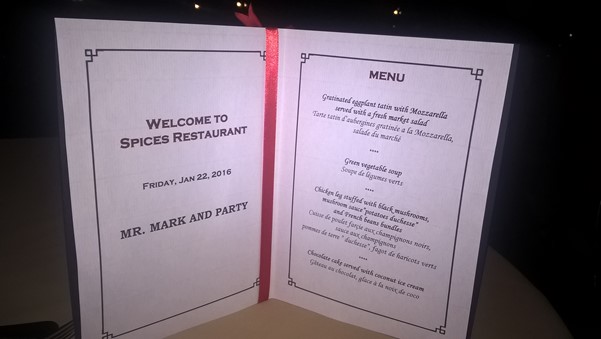 WELCOME TO
SPICES RESTAURANT
FRIDAY, JAN 22, 2016
MR. MARK AND PARTY
MENU
Gratinated eggplant tatin with Mozzarella
served with a fresh market salad
Tarte tatin d'aubergines gratinée a la Mozzarella,
salade du marché
****
Green vegetable soup
Soupe de légumes verts
****
Chicken leg stuffed with black mushrooms,
mushroom sauce "potatoes duchesse"
and French beans bundles
Cuisse de poulet farcie aux champignons noirs,
sauce aux champignons
pommes de terre " duchesse", fagot de haricots verts
****
Chocolate cake served with coconut ice cream
Gâteau au chocolat, glàce à la noix de coco